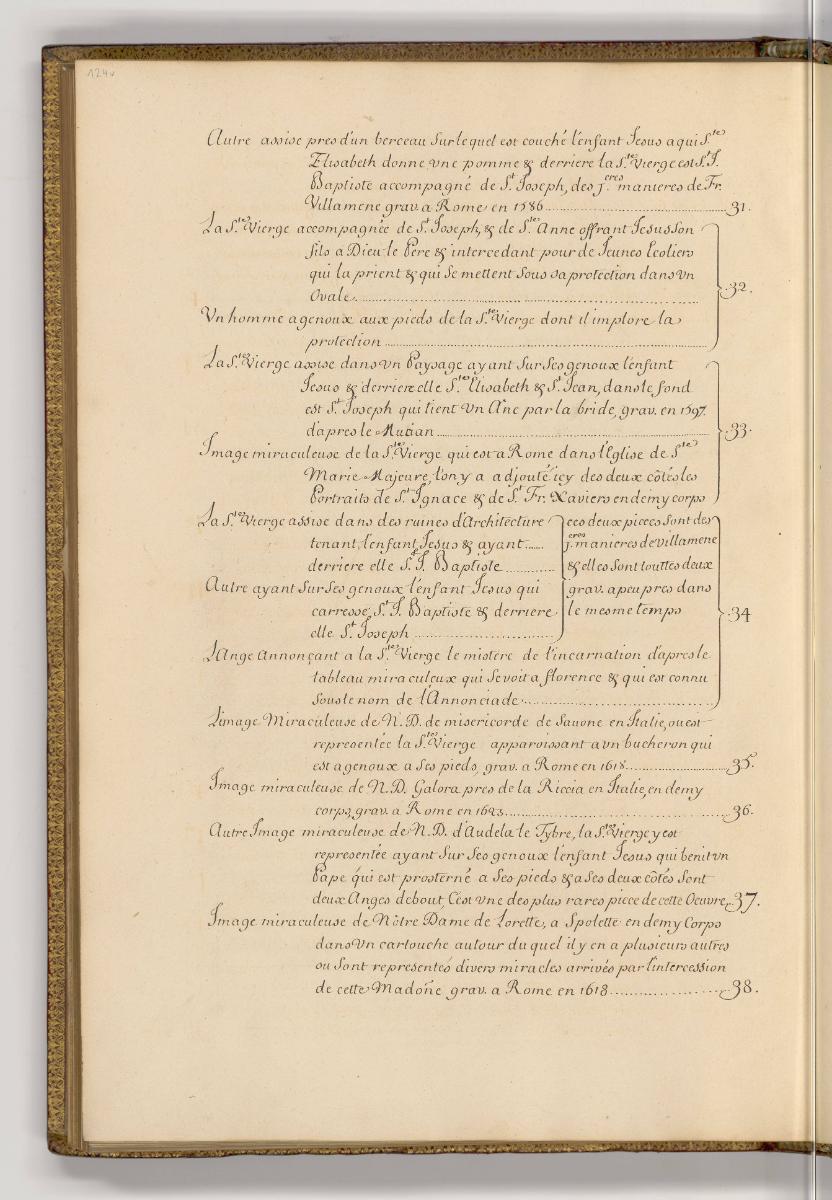 124v
Autre assise pres d'un berceau sur lequel est couché l'enfant Jesus a qui Ste
Elisabeth donne vne pomme & derriere la Ste Vierge est St J.
Baptiste accompagné de St Joseph, des jeres manieres de Fr.
Villamene grav. a Rome en 1586 ........ 31.
La Ste Vierge accompagnée de St Joseph, & de Ste Anne offrant Jesus son
fils a Dieu le Pere & intercedant pour de Jeunes Ecoliers
qui la prient & qui se mettent sous sa protection dans vn
Ovale ........ 32.
Vn homme a genoux aux pieds de la Ste Vierge dont il implore la
protection ........
La Ste Vierge assise dans vn Paysage ayant sur ses genoux l'enfant
Jesus & derriere elle Ste Elisabeth & St Jean, dans le fond
est St Joseph qui tient vn Ane par la bride, grav. en 1597.
d'apres le Mutian ........ 33.
Image miraculeuse de la Ste Vierge qui est a Rome dans l'Eglise de Ste
Marie Majeure, l'on y a adjouté icy des deux côtés les
Portraits de St Ignace & de St Fr. Xaviers en demy corps
La Ste Vierge assise dans des ruines d'Architecture ces deux pieces sont des
tenant l'enfant Jesus & ayant ...... jeres manieres de villamene
derriere elle St J. Baptiste ........ & elles sont touttes deux
Autre ayant sur ses genoux l'enfant Jesus qui grav. a peu pres dans
carresse St J. Baptiste & derriere le mesme temps 34
elle St Joseph ........
L'Ange Annonçant a la Ste Vierge le mistére de l'incarnation d'apres le
tableau miraculeux qui se voit a florence & qui est connu
sous le nom de l'Annonciade ........
L'image Miraculeuse de N.D. de misericorde de Savone en Italie, ou est
representée la Ste Vierge apparoissant a vn bucheron qui
est a genoux a ses pieds, grav. a Rome en 1618 ........ 35.
Image miraculeuse de N.D. Galora pres de la Riccia en Italie, en demy
corps, grav. a Rome en 1623 ........ 36.
Autre Image miraculeuse de N.D. d'audela le Tybre, la Ste Vierge y est
representée ayant sur ses genoux l'enfant Jesus qui benit vn
Pape qui est prosterné a ses pieds & a ses deux côtés sont
deux Anges debout, C'est vne des plus rares piece de cette Oeuvre 37.
Image miraculeuse de Nôtre Dame de Lorette, a Spolette en demy Corps
dans vn cartouche autour du quel il y en a plusieurs autres
ou sont representés divers miracles arrivés par l'intercession
de cette Madone grav. a Rome en 1618 ........ 38.